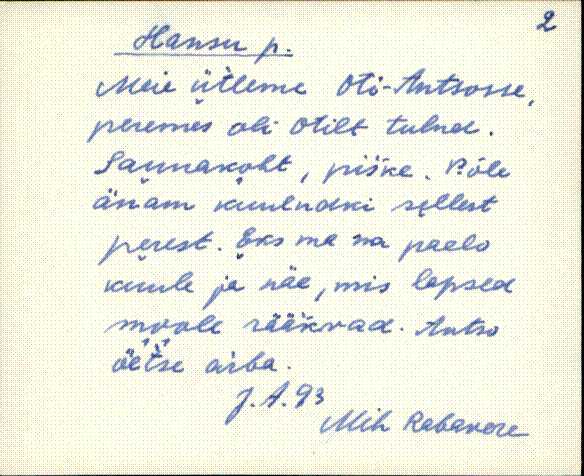 2
Hansu p.
Meie ütleme Oti-Antsosse,
peremēs oli Otilt tulnd.
Saunakoht, piśke. Põle
änam kuulndki sellest
perest. Eks ma na paelo
kuule ja näe, mis lapsed
moole rääkvad. Antso
öets̆e arba.
J. A. 93
Mih Rabavere